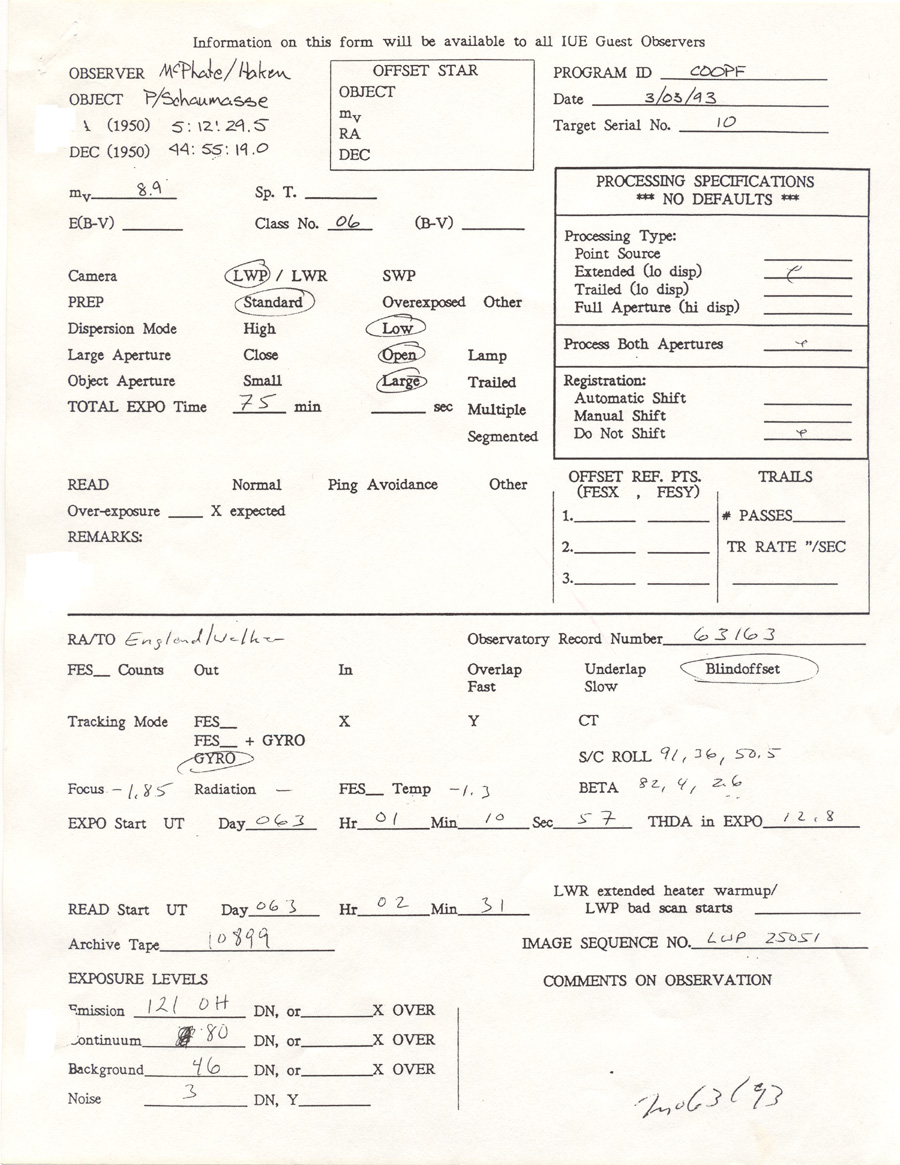 Information on this form will be available to all IUE Guest Observers
OBSERVER McPhate/Haken
OBJECT P/Schaumasse
(1950) 5:12:29.5
DEC (1950) 44:55:19.0
OFFSET STAR
OBJECT
mv
RA
DEC
PROGRAM ID COOPF
Date 3/03/93
Target Serial No. 10
mv 8.9 Sp. T.
E(B-V) Class No. 06 (B-V)
Camera LWP / LWR SWP
PREP Standard Overexposed Other
Dispersion Mode High Low
Large Aperture Close Open Lamp
Object Aperture Small Large Trailed
TOTAL EXPO Time 75 min sec Multiple
Segmented
PROCESSING SPECIFICATIONS
*** NO DEFAULTS ***
Processing Type:
Point Source
Extended (lo disp)
Trailed (lo disp)
Full Aperture (hi disp)
Process Both Apertures
Registration:
Automatic Shift
Manual Shift
Do Not Shift
READ Normal Ping Avoidance Other
Over-exposure X expected
REMARKS:
OFFSET REF. PTS.
(FESX , FESY)
1.
2.
3.
TRAILS
# PASSES
TR RATE "/SEC
RA/TO England/Walker
Observatory Record Number 63163
FES Counts Out In Overlap Underlap Blindoffset
Fast Slow
Tracking Mode FES X Y CT
FES + GYRO
GYRO
S/C ROLL 91, 36, 50.5
Focus -1.85 Radiation — FES Temp -1.3 BETA 82, 4, 2.6
EXPO Start UT Day 063 Hr 01 Min 10 Sec 57 THDA in EXPO 12.8
LWR extended heater warmup/
LWP bad scan starts
READ Start UT Day 063 Hr 02 Min 31
Archive Tape 10899
IMAGE SEQUENCE NO. LWP 25051
EXPOSURE LEVELS
COMMENTS ON OBSERVATION
Emission 121 OH DN, or X OVER
Continuum 80 DN, or X OVER
Background 46 DN, or X OVER
Noise 3 DN, Y